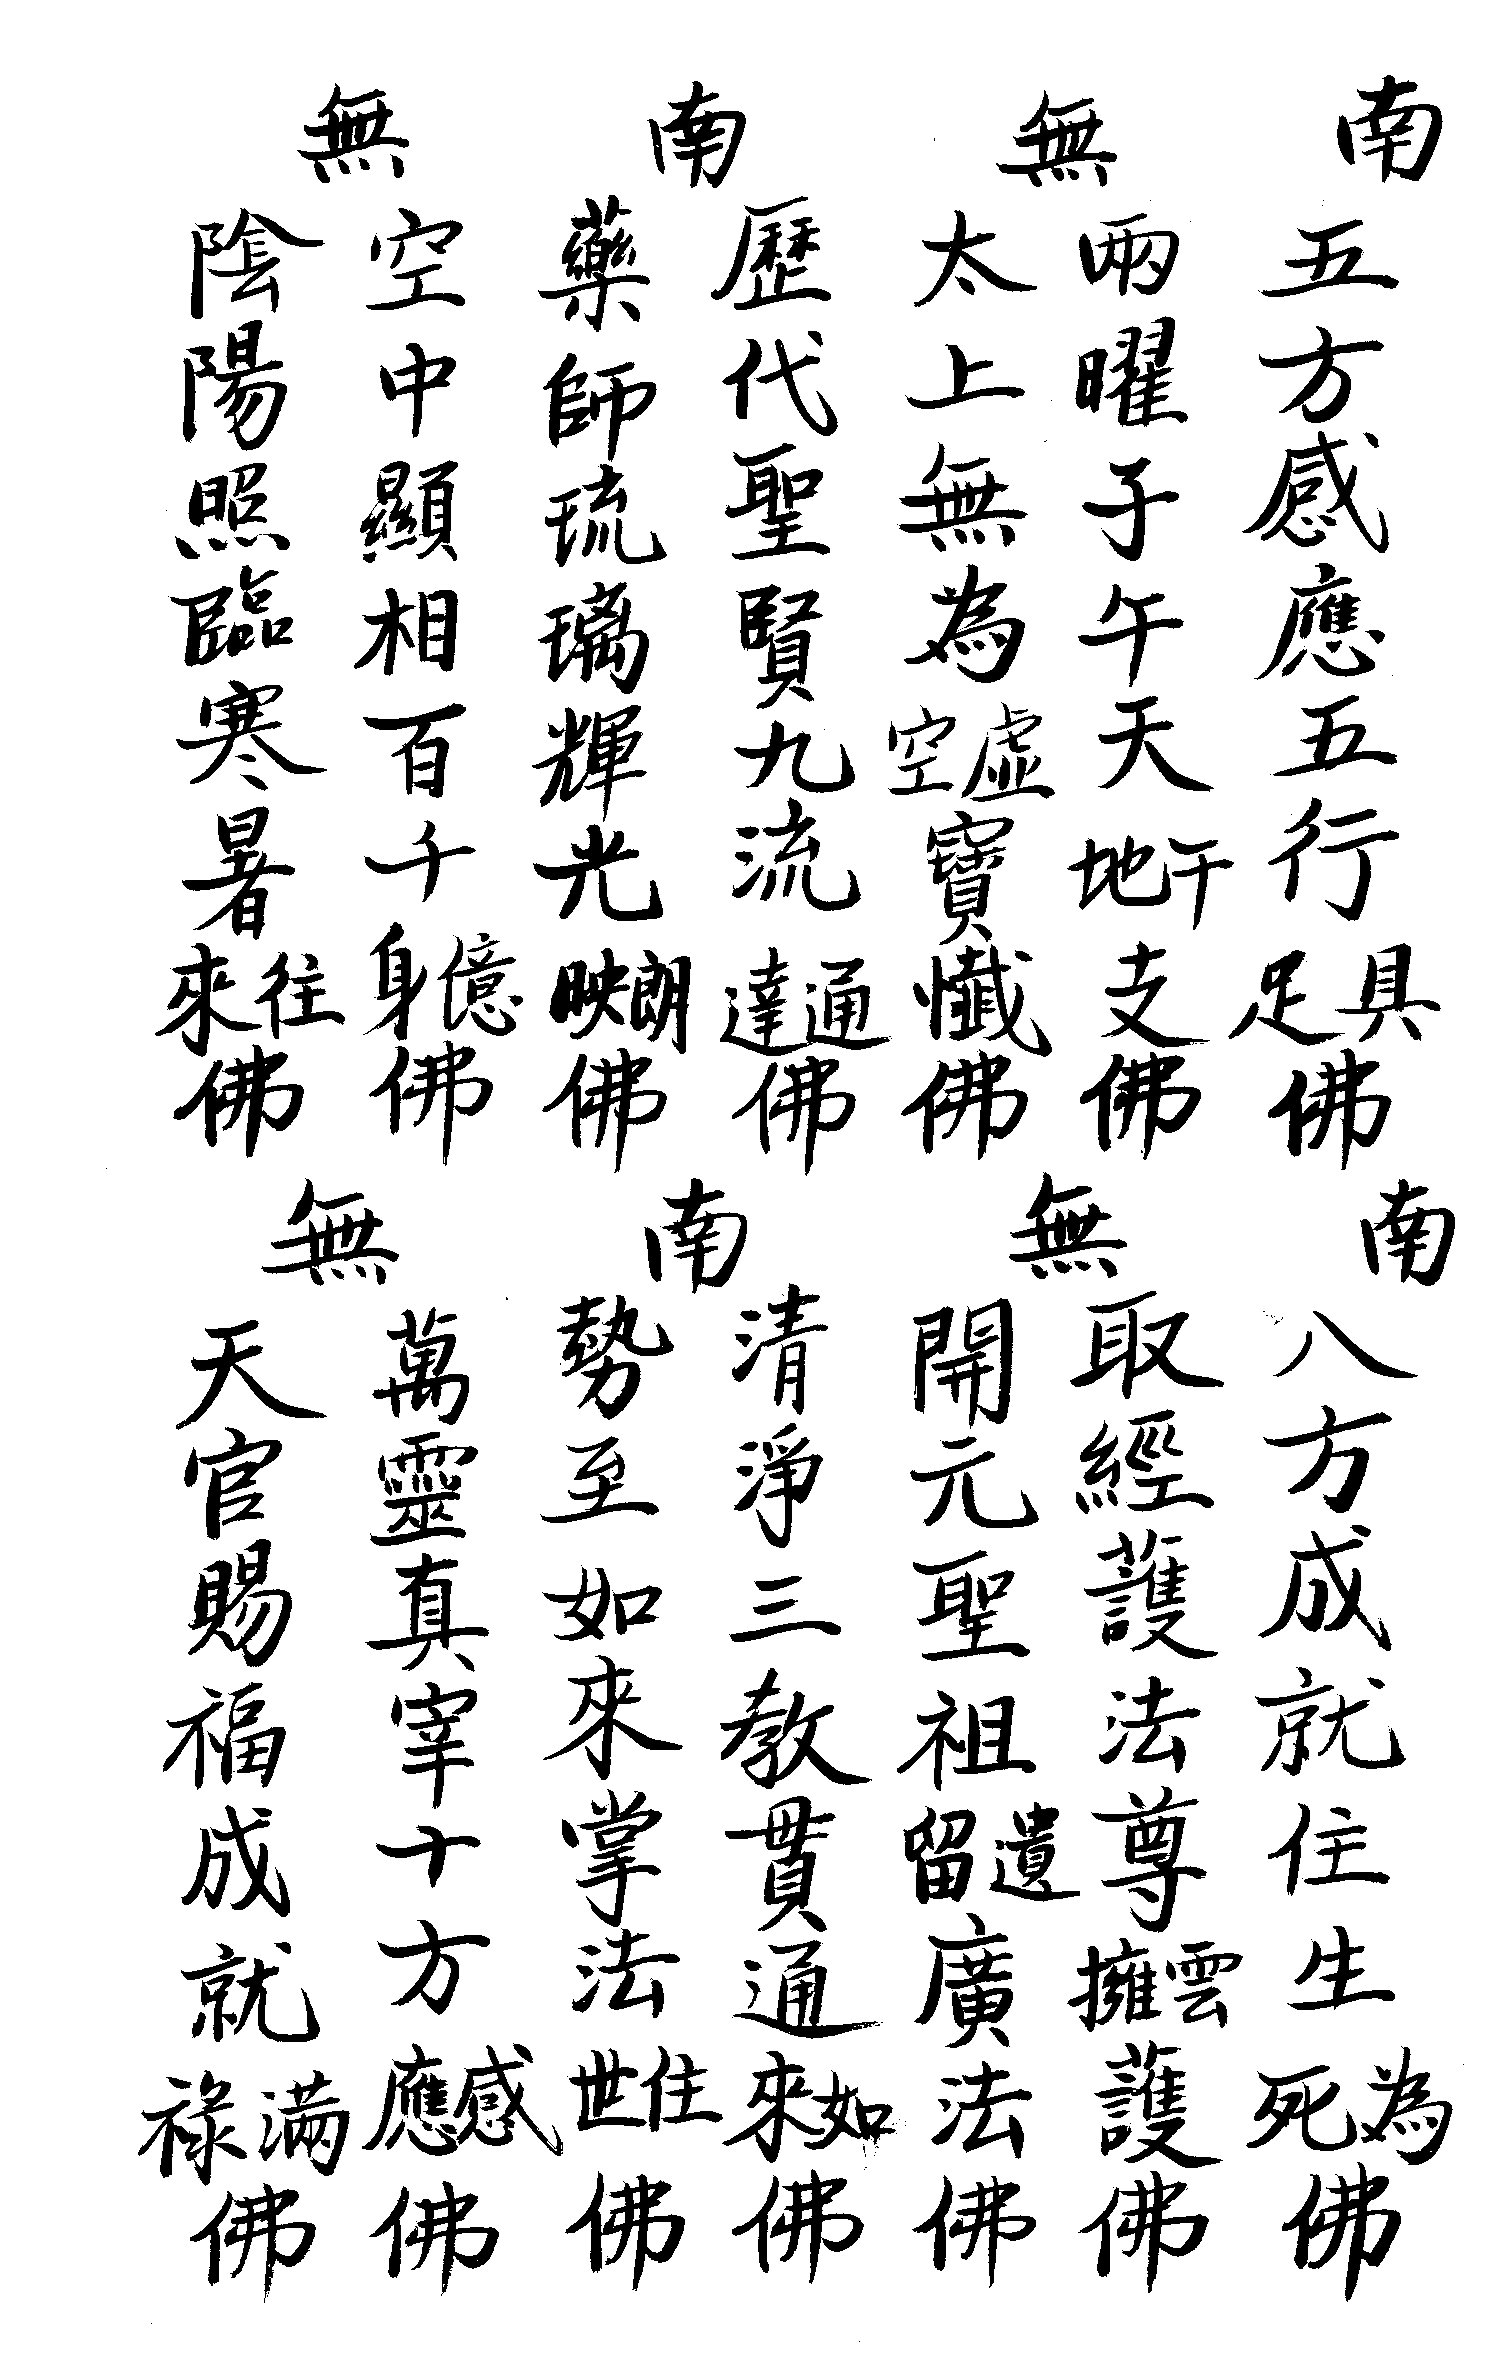 南 無 南 無
五方感應五行具足佛
兩曜子午天干地支佛
太上無為虛空寶懺佛
歷代聖賢九流通達佛
藥師琉璃輝光朗映佛
空中顯相百千億身佛
陰陽照臨寒暑往來佛
南 無 南 無
八方成就住生為死佛
取經護法尊雲擁護佛
開元聖祖遺留廣法佛
清淨三教貫通如來佛
勢至如來掌法住世佛
萬靈真宰十方感應佛
天官賜福成就滿祿佛